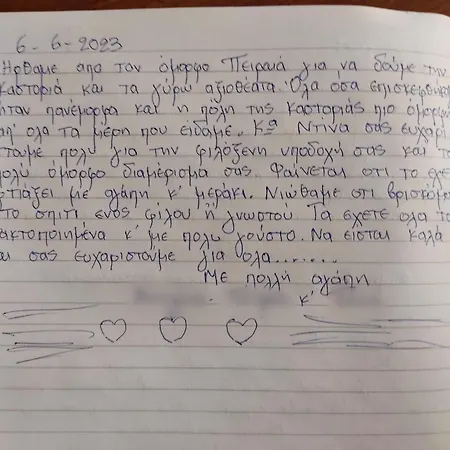 6-6-2023
Ηρθαμε απο τον όμορφο Πειραιά για να δούμε την
Καστοριά και τα γύρω αξιοθέατα. Όλα οσα επισκεφθηκα
ήταν πανέμορφα και η πόλη της Καστοριάς πιο όμορφη
απ' ολα τα μέρη που είδαμε. Κα Ντίνα σας ευχαρι
στουμε πολυ για την φιλόξενη υποδοχή σας και το
πολύ όμορφο διαμέρισμα σας. Φαίνεται οτι το έχε
φτιάξει με αγάπη κ' μεράκι. Νιώθαμε οτι βρισκομα
στο σπίτι ενός φίλου ή γνωστού. Τα έχετε ολα τα
ακτοποιημένα κ' με πολυ γούστο. Να είσται καλά
αι σας ευχαριστούμε για ολα........
Με πολλή αγάπη
κ'